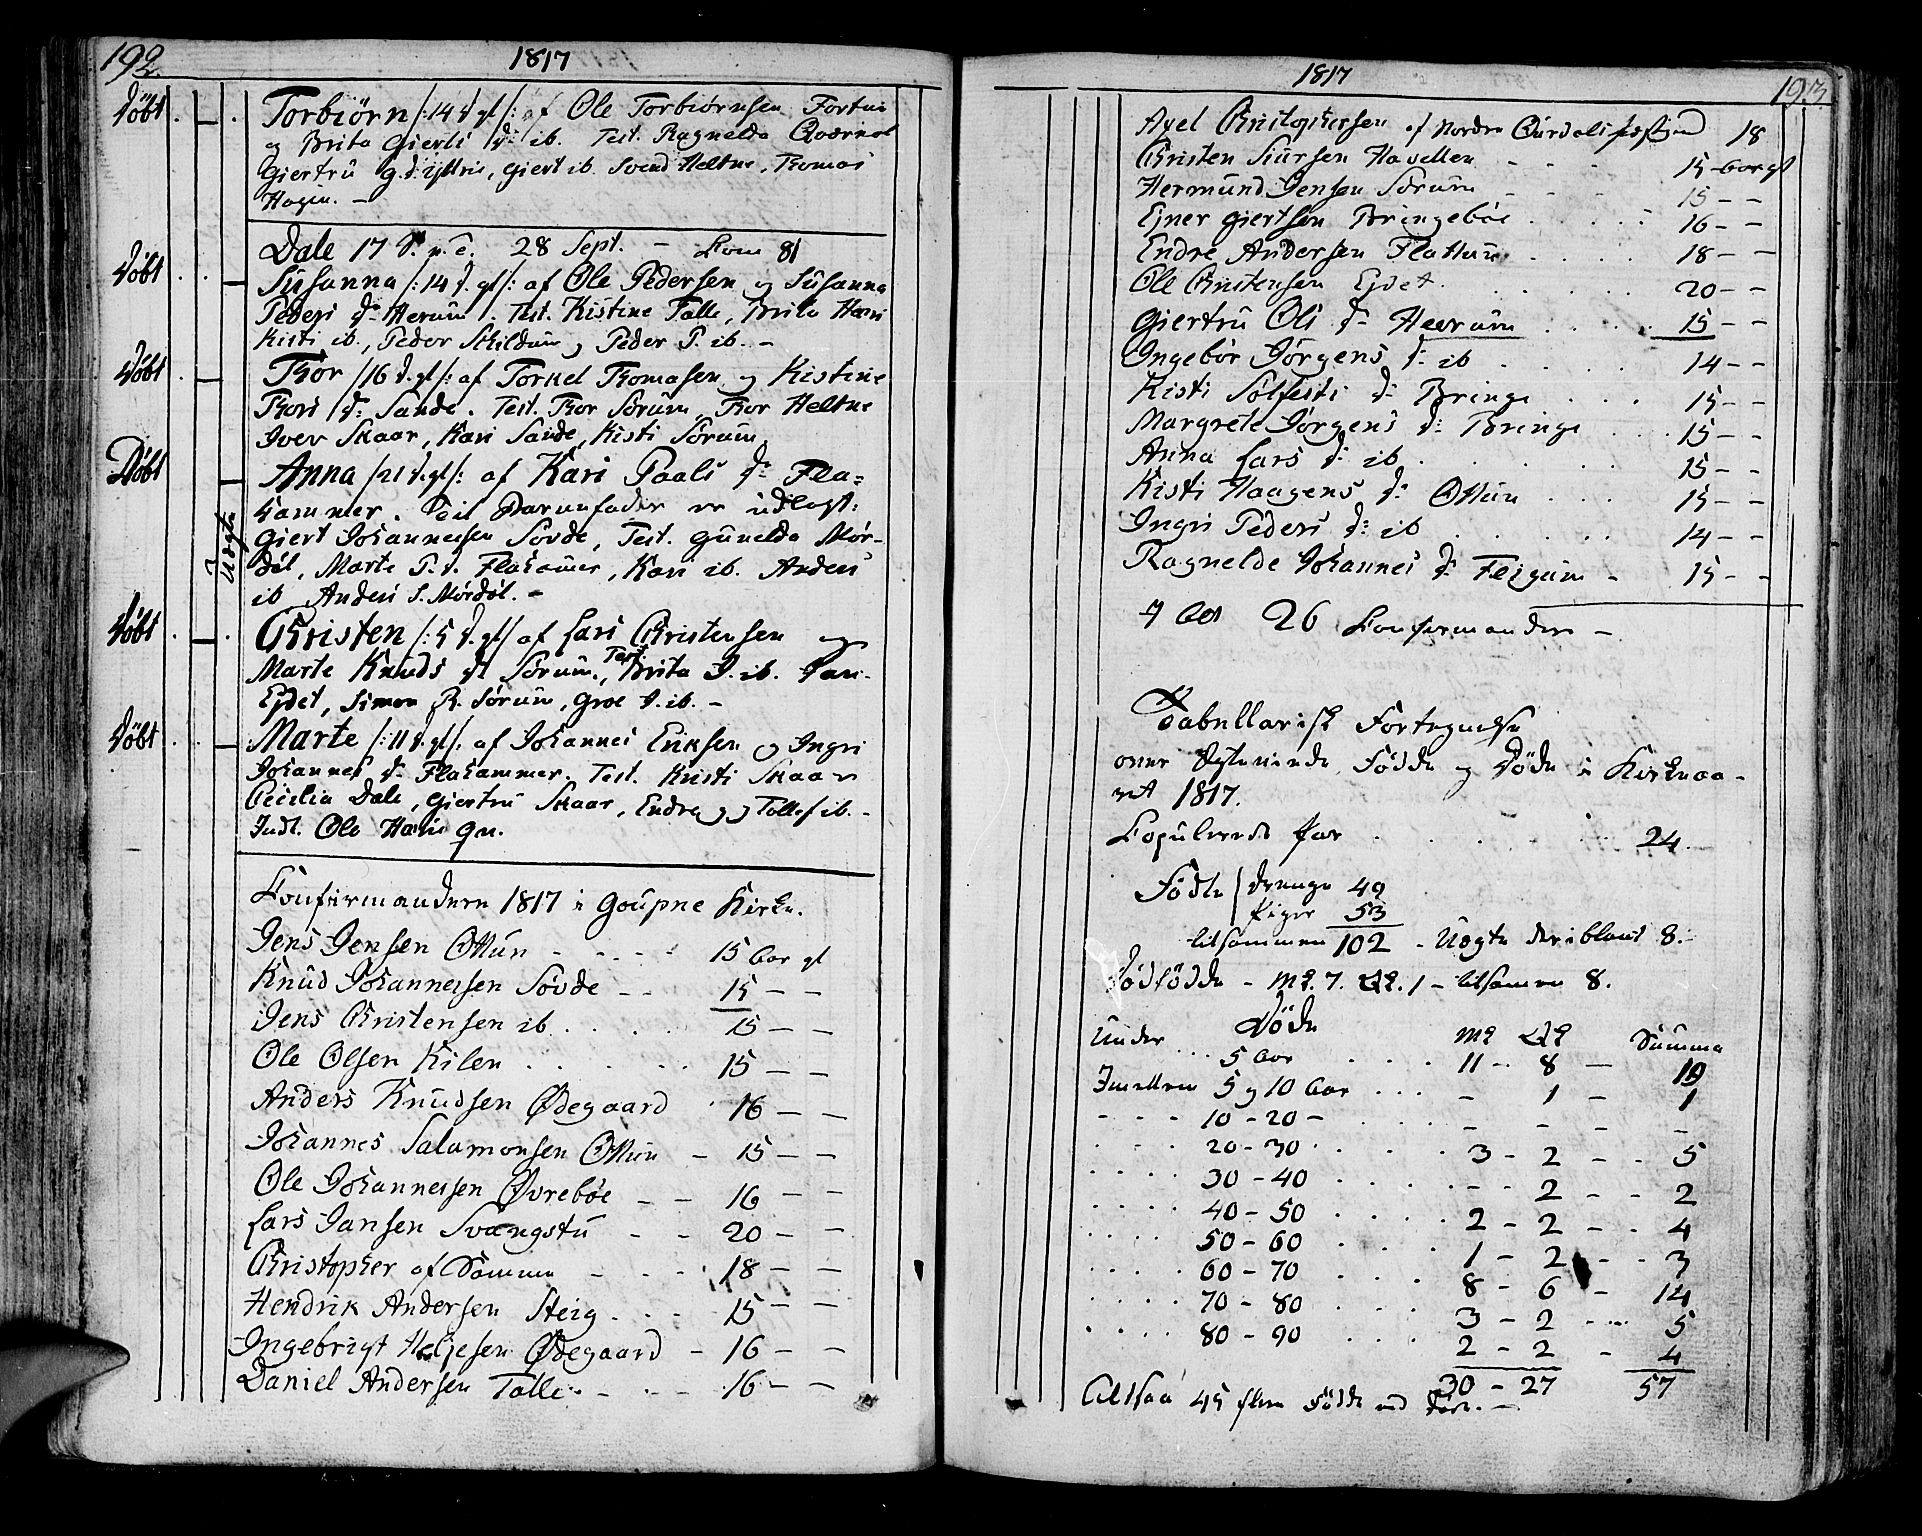 192.
1817
Döbt Torbiörn /:14 d gl/: af Ole Torbiörnsen Fortun
og Brita Gierts d: ib. Test. Ragnelda Qværnol
Giertrü g. d: ystrie, Giert ib. Svend Heltne, Thomas
Hagin. –
Dale 17 S. n. T. 28 Sept. – Com 81
Döbt Süsanna /:14 d. gl/: af Ole Pedersen og Süsanna
Peders d: Herüm. Test. Kistine Talle, Brita Hæri
Kisti ib., Peder Schildüm og Peder P. ib. –
Döbt Thor /16 d. gl/: af Torkel Thomasen og Kistine
Thors d: Sande. Test. Thor Sörüm, Thor Heltne
Iver Skaar, Kari Sande, Kisti Sörüm.
Döbt Anna /21 d. gl/: af Kari Paals d: Fla=
hammer. Til Barnefader er udlagt:
Uægte
Giert Johannesen Sövde, Test. Gunelda Mör-
döl, Marte P. d. Flahamer, Kari ib. Anders
ib. Anders S. Mördöl. –
Döbt Christen /:5 d. gl/ af Lars Christensen og
Marte Knüds d: Sörüm, Test. Brita J. ib. Dan.
Ejdet, Simon R. Sörüm, Groe J. ib. –
Döbt Marte /:11 d. gl/: af Johannes Eriksen og Ingri
Johannes d: Flahammer. Test. Kristi Skaar
Cecilia Dale, Giertrü Skaar, Endre og Tollef ib. –
Indl. Ole Hæri qv.
Confirmanderne 1817 i Goüpne Kirke.
Jens Jensen Ottün – – – – 15 aar gl
Knüd Johannesen Sövde – – 15 – –
Jens Christensen ib. . . . 15 – –
Ole Olsen Kilen . . . . . 15 – –
Anders Knüdsen Ødegaard . 16 – –
Johannes Salamonsen Ottün – 15 – –
Ole Johannesen Øvrebøe – – 16 – –
Lars Jansen Svangstü – – 20 – –
Christopher af Somme – – – 18 – –
Hendrik Andersen Steig . . 15 – –
Ingebrigt Heljesen Ødegaard – 16 – –
Daniel Andersen Talle – – – 16 – –
1817
193
Axel Christophersen af Nordre Aürdals præstegield 18
Christen Siürsen Havellen – – – 15 – aar gl
Hermünd Jensen Sörüm – – – 15 – –
Ejner Giertsen Bringebøe . . . . . 16 – –
Endre Andersen Flattün . . . . 18 – –
Ole Christensen Ejdet . . . . . 20 – –
Giertrü Ols d: Heerüm . . . . 15 – –
Ingebör Jørgens d: ib . . . . 14 – –
Kisti Sölfesti d: Bringe . . . 15 – –
Margrete Jørgens d: Bringe . . . 15 – –
Anna Lars d: ib . . . . . 15 – –
Kisti Haagens d: Ottün . . . 15 – –
Ingri Peders d: ib . . . . . 14 – –
Ragnelde Johannes d: Flejgüm – 15 – –
I alt 26 Confirmander –
Tabellarisk Fortegnelse
over Ægteviede, Födde og Döde i Kirkeaa-
ret 1817.
Copulerede Par . . . . . . 24
Födte drenge 49
Piger 53
tilsammen 102 – Uægte deriblant 8. –
Dødfödde – M?. 7. Q?. 1 – tilsamen 8.
Döde
Under 5 aar . . . . M? Q? Summa
11 – 8 – 19
Imellem 5 og 10 aar . . . – 1 – 1
– – – 10 – 20 – . . . – – – –
. . . . 20 – 30 . . . . 3 – 2 – – 5
. . . . 30 – 40 . . . . – – 2 – – 2
. . . . 40 – 50 . . . . 2 – 2 – – 4
. . . . 50 – 60 . . . . 1 – 2 – – 3
. . . . 60 – 70 . . . . 8 – 6 – 14
. . . . 70 – 80 . . . . 3 – 2 – – 5
. . . . 80 – 90 . . . . 2 – 2 – 4
30 – 27 57
Altsaa 45 flere Födde end Døde. –